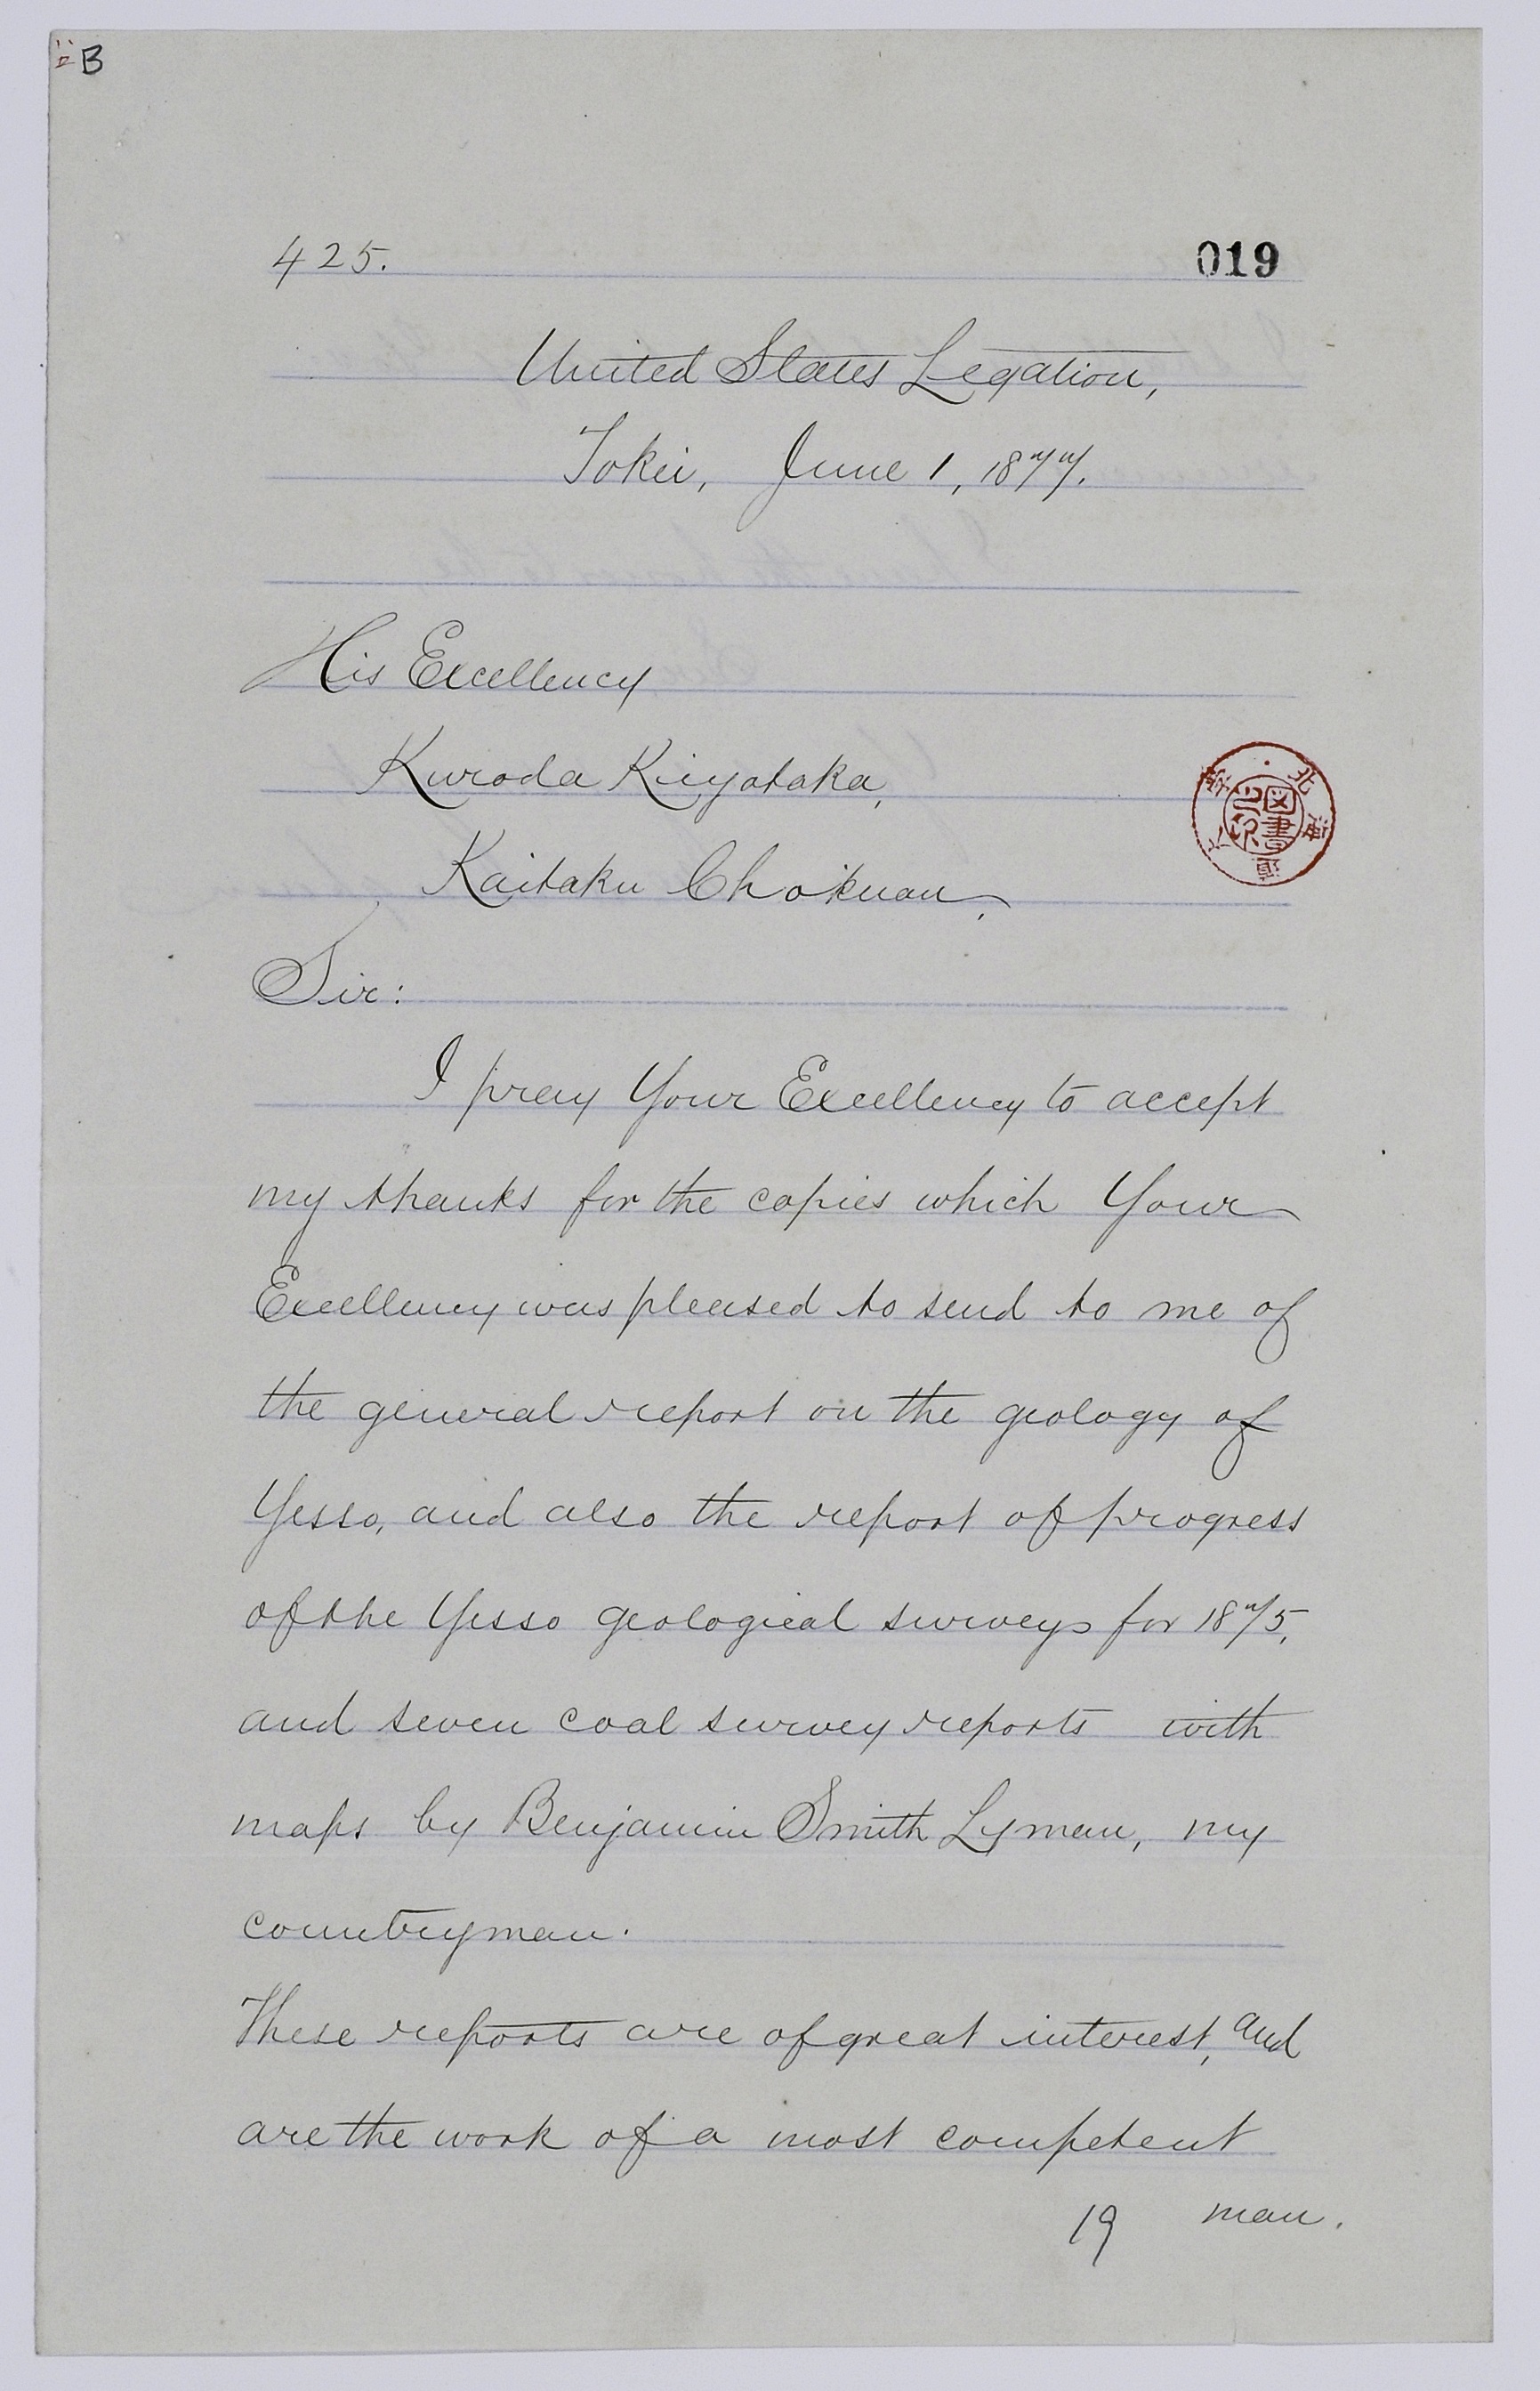 B
425.
019
United States Legation,
Tokei, June 1, 1877.
His Excellency
Kuroda Kiyotaka,
Kaitaku Chokuan,
Sir:
I pray Your Excellency to accept
my thanks for the copies which Your
Excellency was pleased to send to me of
the general report on the geology of
Yesso, and also the report of progress
of the Yesso geological surveys for 1875,
and seven coal survey reports with
maps by Benjamin Smith Lyman, my
countryman.
These reports are of great interest, and
are the work of a most competent
19 man.
北海道大学
図書